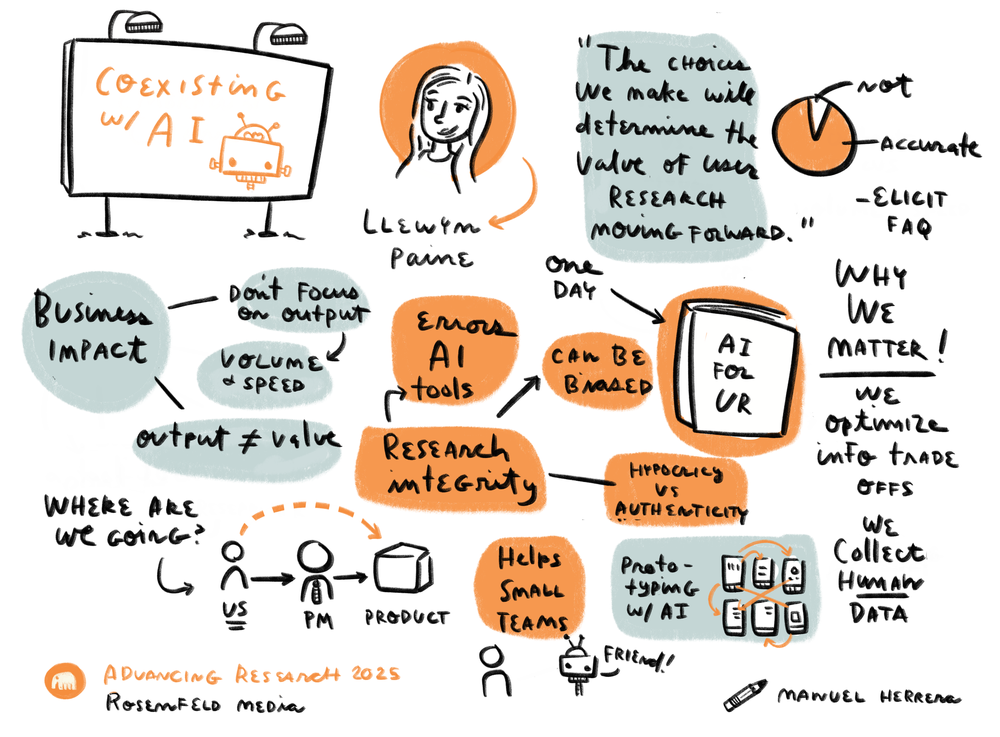 COEXISTING
W/ AI
LLEWYN
PAINE
"THE CHOICES
WE MAKE WILL
DETERMINE THE
VALUE OF USER
RESEARCH
MOVING FORWARD."
NOT
ACCURATE
-ELICIT
FAQ
BUSINESS
IMPACT
DON'T FOCUS
ON OUTPUT
VOLUME
& SPEED
OUTPUT ≠ VALUE
ERRORS
AI
TOOLS
RESEARCH
INTEGRITY
CAN BE
BIASED
HYPOCRICY
VS
AUTHENTICITY
ONE
DAY
AI
FOR
UR
WHY
WE
MATTER!
WE
OPTIMIZE
INFO TRADE
OFFS
WE
COLLECT
HUMAN
DATA
WHERE ARE
WE GOING?
US
PM
PRODUCT
HELPS
SMALL
TEAMS
FRIEND!
PROTO-
TYPING
W/ AI
ADVANCING RESEARCH 2025
ROSENFELD MEDIA
MANUEL HERRERA